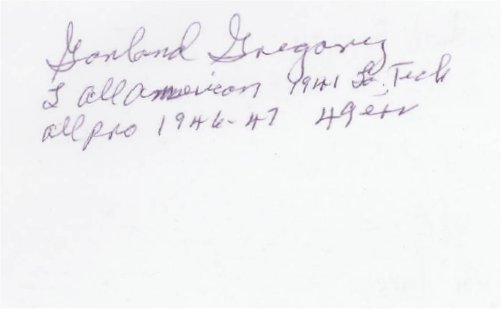 Garland Gregory
L All American 1941 La. Tech
all pro 1946-47 49er